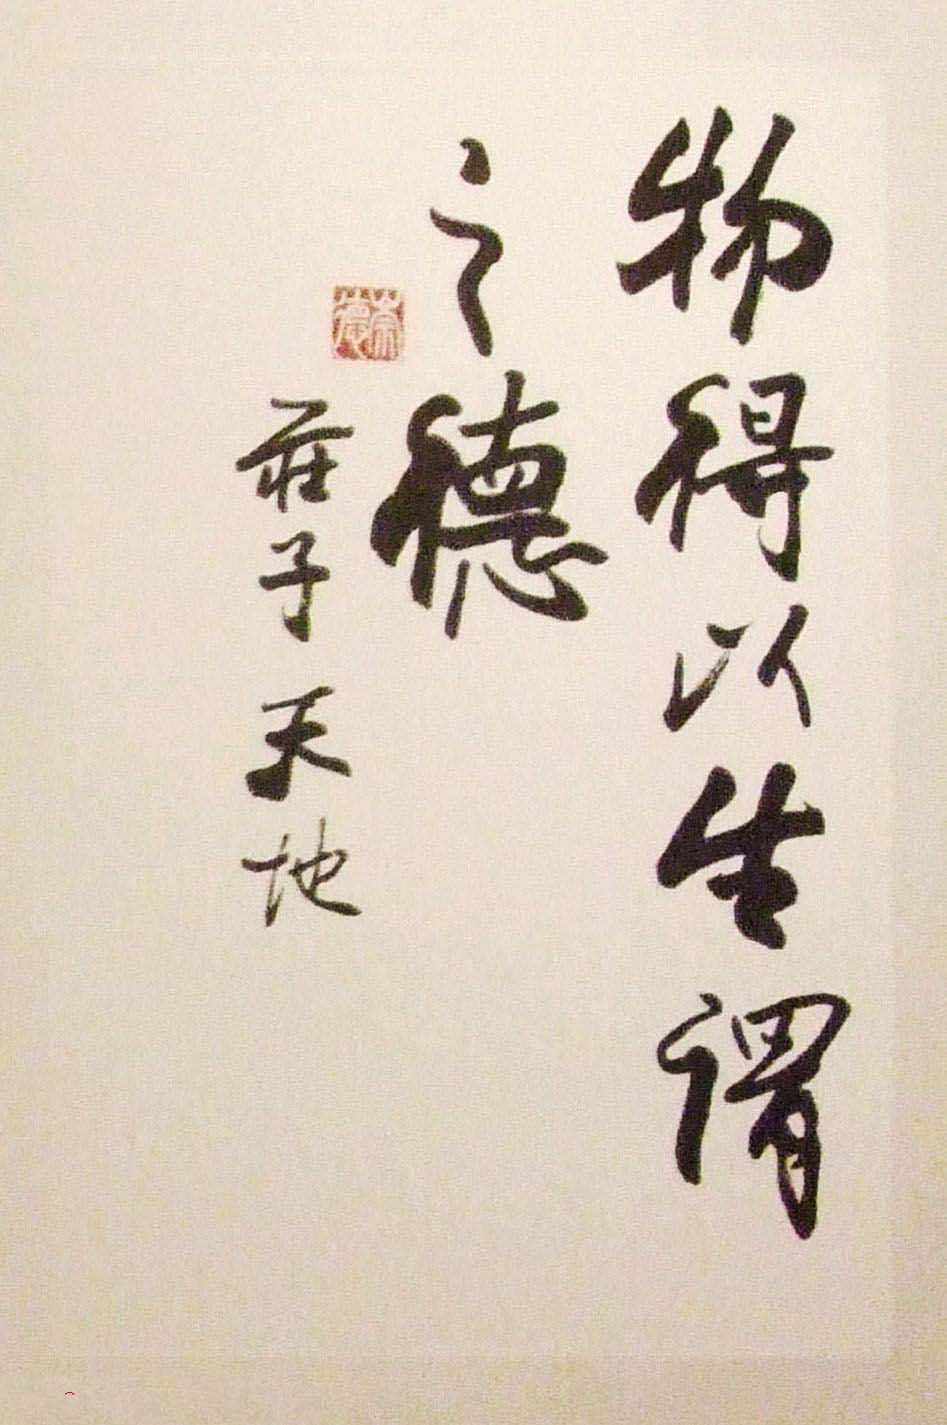 物得以生謂
之德
莊子 天地